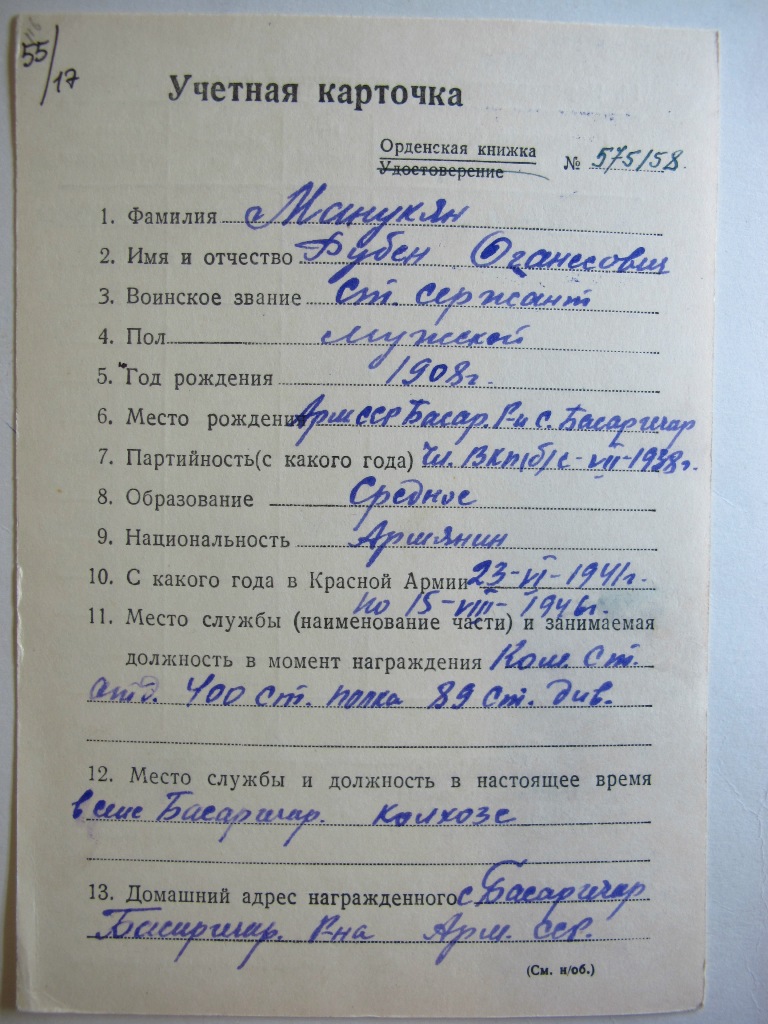 55/17
Учетная карточка
Орденская книжка
Удостоверение № 575158
1. Фамилия Манукян
2. Имя и отчество Рубен Оганесович
3. Воинское звание ст. сержант
4. Пол мужской
5. Год рождения 1908г.
6. Место рождения Арм ССР Басар. Р-н с. Басаргечар
7. Партийность(с какого года) Чл. ВКП(б) с-VII-1938г.
8. Образование Среднее
9. Национальность Армянин
10. С какого года в Красной Армии 23-VI-1941г.
по 15-VIII-1946г.
11. Место службы (наименование части) и занимаемая
должность в момент награждения Ком. ст.
отд. 400 ст. полка 89 ст. див.
12. Место службы и должность в настоящее время
в селе Басаргечар. колхозе
13. Домашний адрес награжденного с Басаргечар
Басаргечар. Р-на Арм. ССР.
(См. н/об.)